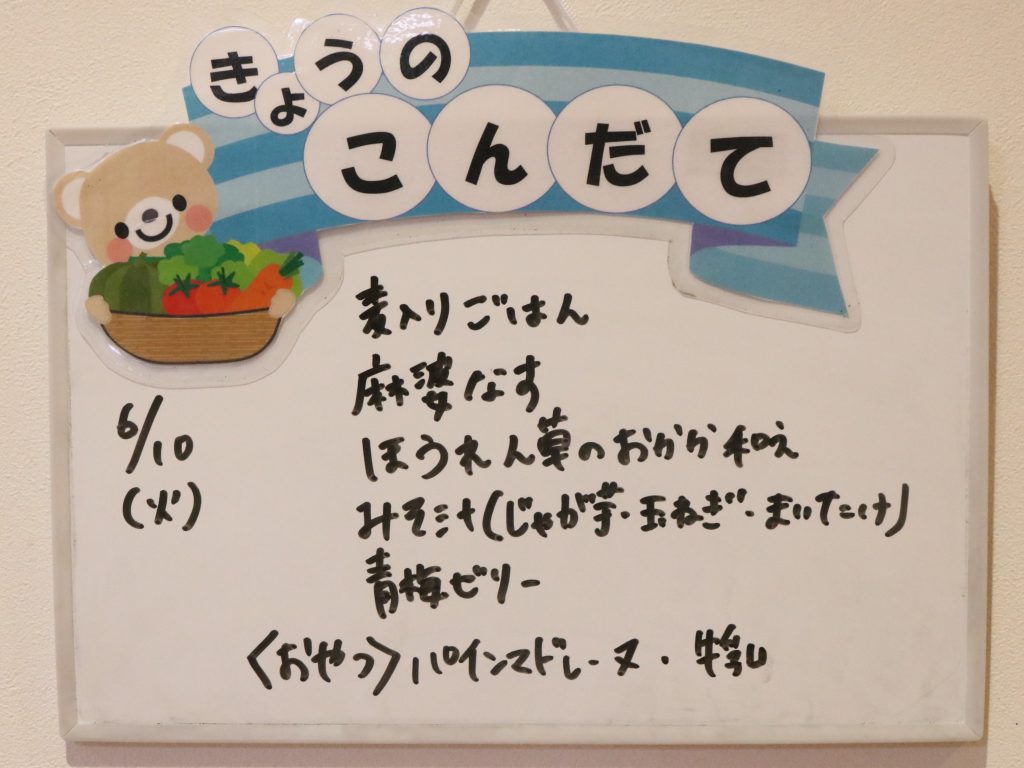 きょうの
こんだて
麦入りごはん
麻婆なす
6/10
(火)
ほうれん草のおかか和え
みそ汁(じゃが芋・玉ねぎ・まいたけ)
青梅ゼリー
〈おやつ〉パインマドレーヌ・牛乳